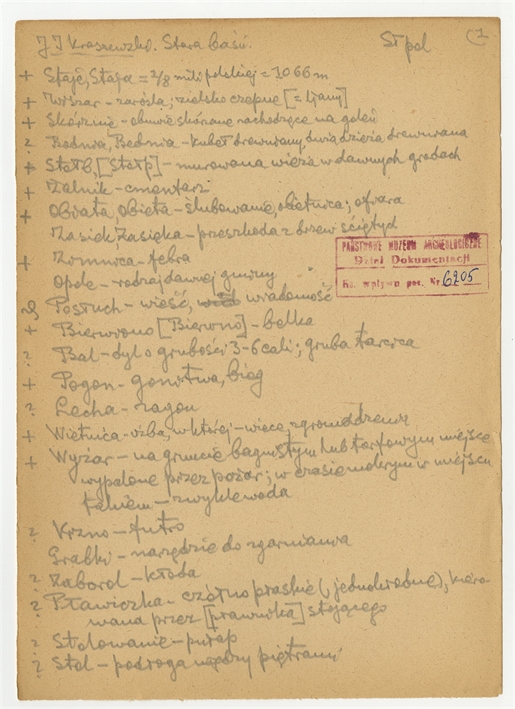 J. I Kraszewski. Stara baśń. St. pol (1
+ Staje, Staja = 2/8 mili polskiej = 1066 m
+ Wiszar – zarośla; zielsko czepne [= liany]
+ Skórznie – obuwie skórzane zachodzące na goleń
? Bodnia, Bednia – kubeł drewniany, dwią dzieża drewniana
+ Stołb, [Stołp] – murowana wieża w dawnych grodach
+ Żalnik – cmentarz
+ Obiata, Obieta – ślubowanie, obietnica; ofiara
Zasiek Zasieka – przeszkoda z drzew ściętych
+ Zimnica – febra
Opole – rodzaj dawnej gminy
Posłuch – wieść, wiadomość
+ Bierwiono [Bierwno] – belka
? Bal – dyl o grubości 3–6 cali; gruba tarcica
+ Pogoń – gonitwa, bieg
? Lecha – zagon
+ Wietnica – izba, w której – wiece, zgromadzenia
+ Wyżar – na gruncie bagnistym lub torfowym miejsce
wypalone przez pożar; w czasie mokrym w miejscu
takiem – zwykle woda
? Krzno – futro
Grabki – narzędzie do zgarniania
? Zaboról – kłoda
? Pławiczka – czółno płaskie (jednokrotne), kiero-
wana przez [prawnika] stojącego
? Stolowanie – pułap
? Stol – podłoga między piętrami
PAŃSTWOWE MUZEUM ARCHEOLOGICZNE
Dział Dokumentacji
Ks. wpływu poz. Nr. 6205